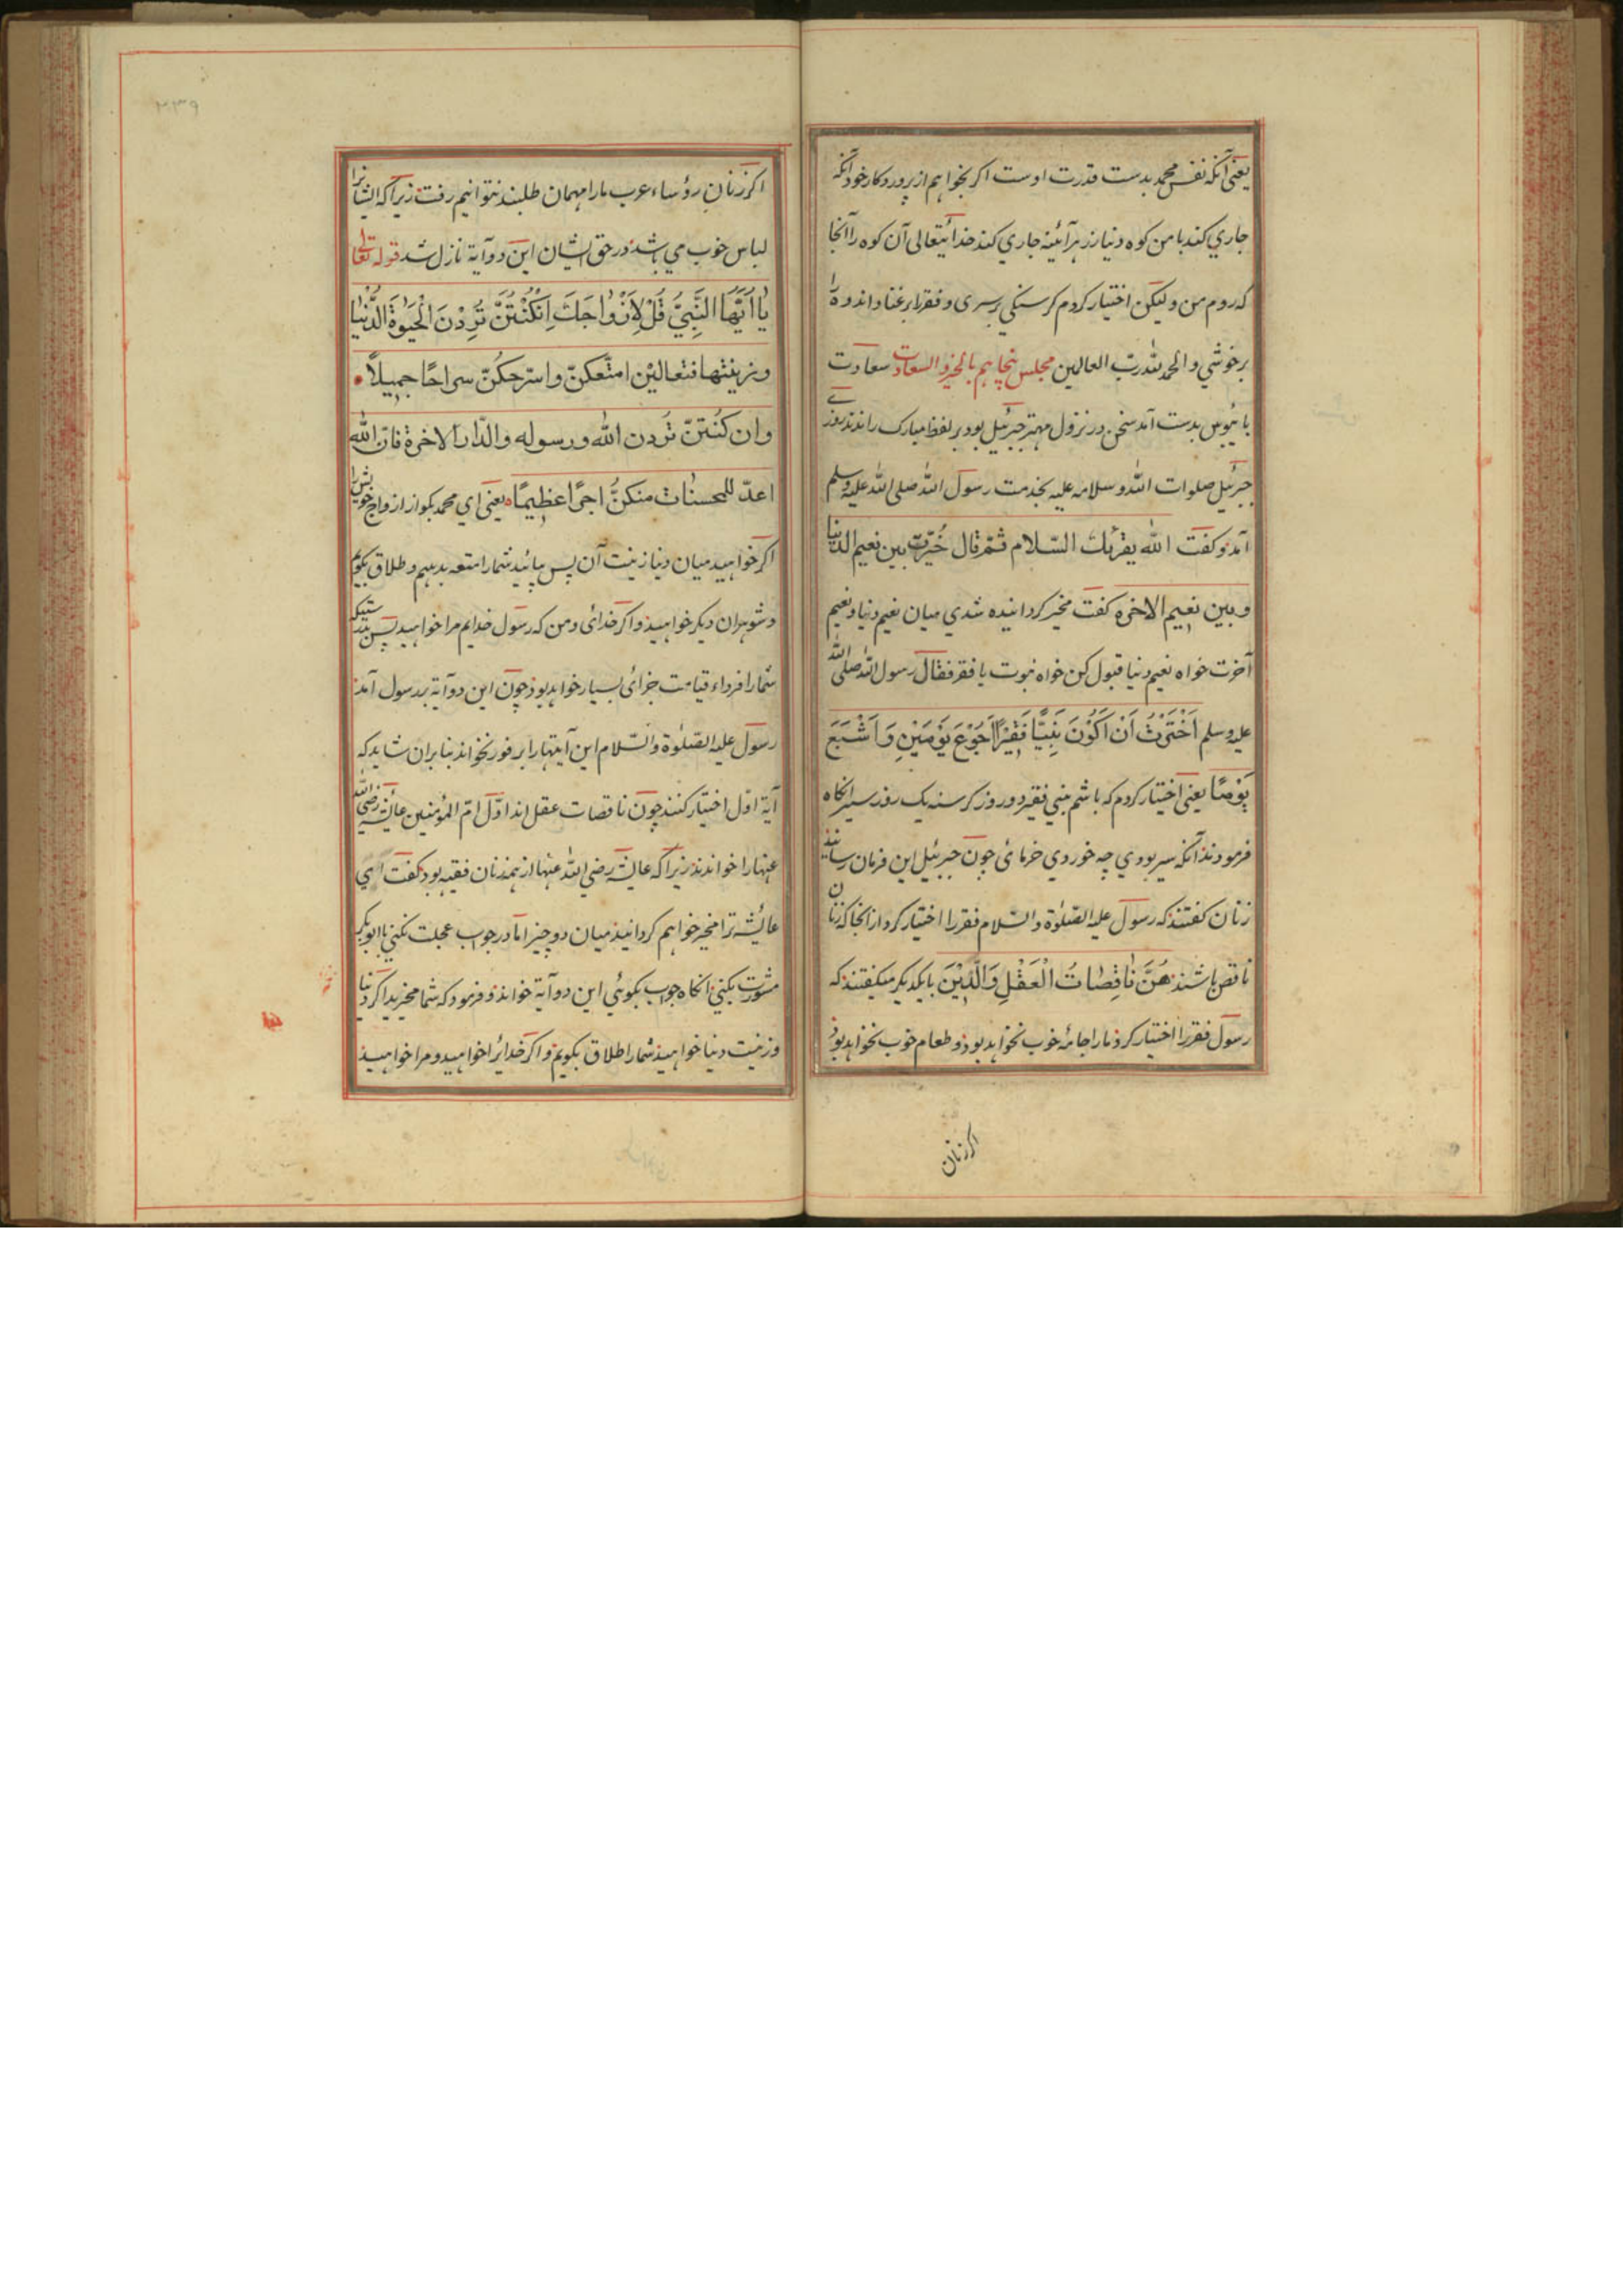 یعنی آنکه نفس محمد بدست قدرت اوست اکر بخواهم از پروردکار خود آنکه
جاري کند با من کوه دنیا زر هر آئینه جاري کند خدائیتعالی آن کوه را آنجا
که روم من و لیکن اختیار کردم کرسنکي بر سیری و فقر را بر غنا و اندوه را
بر خوشي و الحمد لله رب العالمین مجلس پنجاهم بالخیر و السعادت سعادت
پائبوس بدست آمد سخن در نزول مهتر جبرئیل بود بر لفظ مبارک راندند روزے
جبرئیل صلوات الله و سلامه علیه بخدمت رسول الله صلی الله علیه وسلم
آمد و کفت الله یقرئك السّلام ثمّ قال خُیّرت بین نعیم الدنیا
و بین نعیم الاخرة کفت مخیر کردانیده شدي میان نعیم دنیا و نعیم
آخرت خواه نعیم دنیا قبول کن خواه نبوت با فقر فقال رسول الله صلی الله
علیه وسلم اَخْتَرْتُ اَنْ اَکُوْنَ نَبِیًّا فَقِیْرًا اَجُوْعَ یَوْمَیْنِ وَ اَشْبَعَ
یَوْمًا یعنی اختیار کردم که باشم نبي فقیر دو روز کرسنه یک روز سیر آنکاه
فرمودند آنکه سیر بودي چه خوردي خرمائ چون جبرئیل این فرمان رسانید
زنان کفتند که رسول علیه الصّلوٰة و السّلام فقر را اختیار کرد از آنجا که زنان
ناقص باشند هُنَّ نَاقِصَاتُ الْعَقْلِ وَالدِّیْنَ با یکدیکر میکفتند که
رسول فقر را اختیار کرد ما را جامۀ خوب نخواهد بود و طعام خوب نخواهد بود
اکر زنان
۲۳۹
اکر زنان رؤساء عرب ما را مهمان طلبند نتوانیم رفت زیرا که ایشانرا
لباس خوب مي باشد در حق ایشان این دو آیة نازل شد قوله تعالی
یٰا اَیُّهَا النَّبِيُّ قُلْ لِاَزْوَاجِكَ اِنْ کُنْتُنَّ تُرِدْنَ الْحَیٰوةَ الدُّنْیٰا
وزینتها فتعالیْن امتّعکنّ واسرّحکُنّ سراحًا جمیلاً
وان کُنتنّ تُردن الله ورسوله والدّار الاخرة فانّ الله
اعدّ للمحسنات منکنُّ اجرًا عظیمًا یعنی اي محمد بکو از ازواج خویش را
اکر خواهید میان دنیا زینت آن پس بیائید شما را متعه بدهیم و طلاق بکویم
و شوهران دیکر خواهید و اکر خدائ و من که رسول خدایم مرا خواهید پس بدرستیکه
شما را فرداء قیامت جزائ بسیار خواهد بود چون این دو آیة بر رسول آمد
رسول علیه الصّلوٰة والسّلام این آیتها را بر فور نخواند بنا بر آن شاید که
آیة اوّل اختیار کنند چون ناقصات عقل اند اوّل امّ المؤمنین عائشه رضي الله
عنها را خواندند زیرا که عائشه رضي الله عنها از همه زنان فقیه بود کفت اي
عائیشه ترا مخیر خواهم کردانید میان دو چیز امّا در جواب عجلت نکني با ابوبکر
مشورت بکني آنکاه جواب بکوئي این دو آیة خواند و فرمود که شما مخیرید اکر دنیا
و زینت دنیا خواهید شما را طلاق بکویم و اکر خدائرا خواهید و مرا خواهید